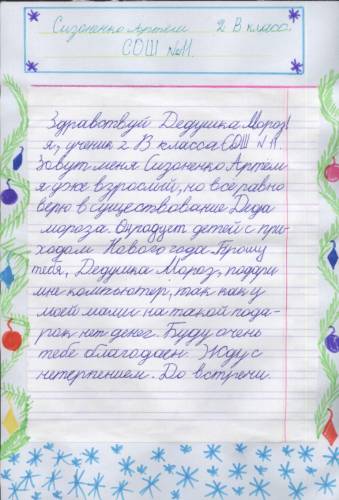 Сизоненко Артём 2 В класс.
СОШ №11.
Здравствуй Дедушка Мороз!
я, ученик 2 В класса СОШ №11.
Зовут меня Сизоненко Артём
я уже взрослый, но всё равно
верю в существование Деда
мороза. Он радует детей с при-
ходом Нового года. Прошу
тебя, Дедушка Мороз, подари
мне компьютер, так как у
моей мамы на такой пода-
рок нет денег. Буду очень
тебе благодарен. Жду с
нетерпением. До встречи.